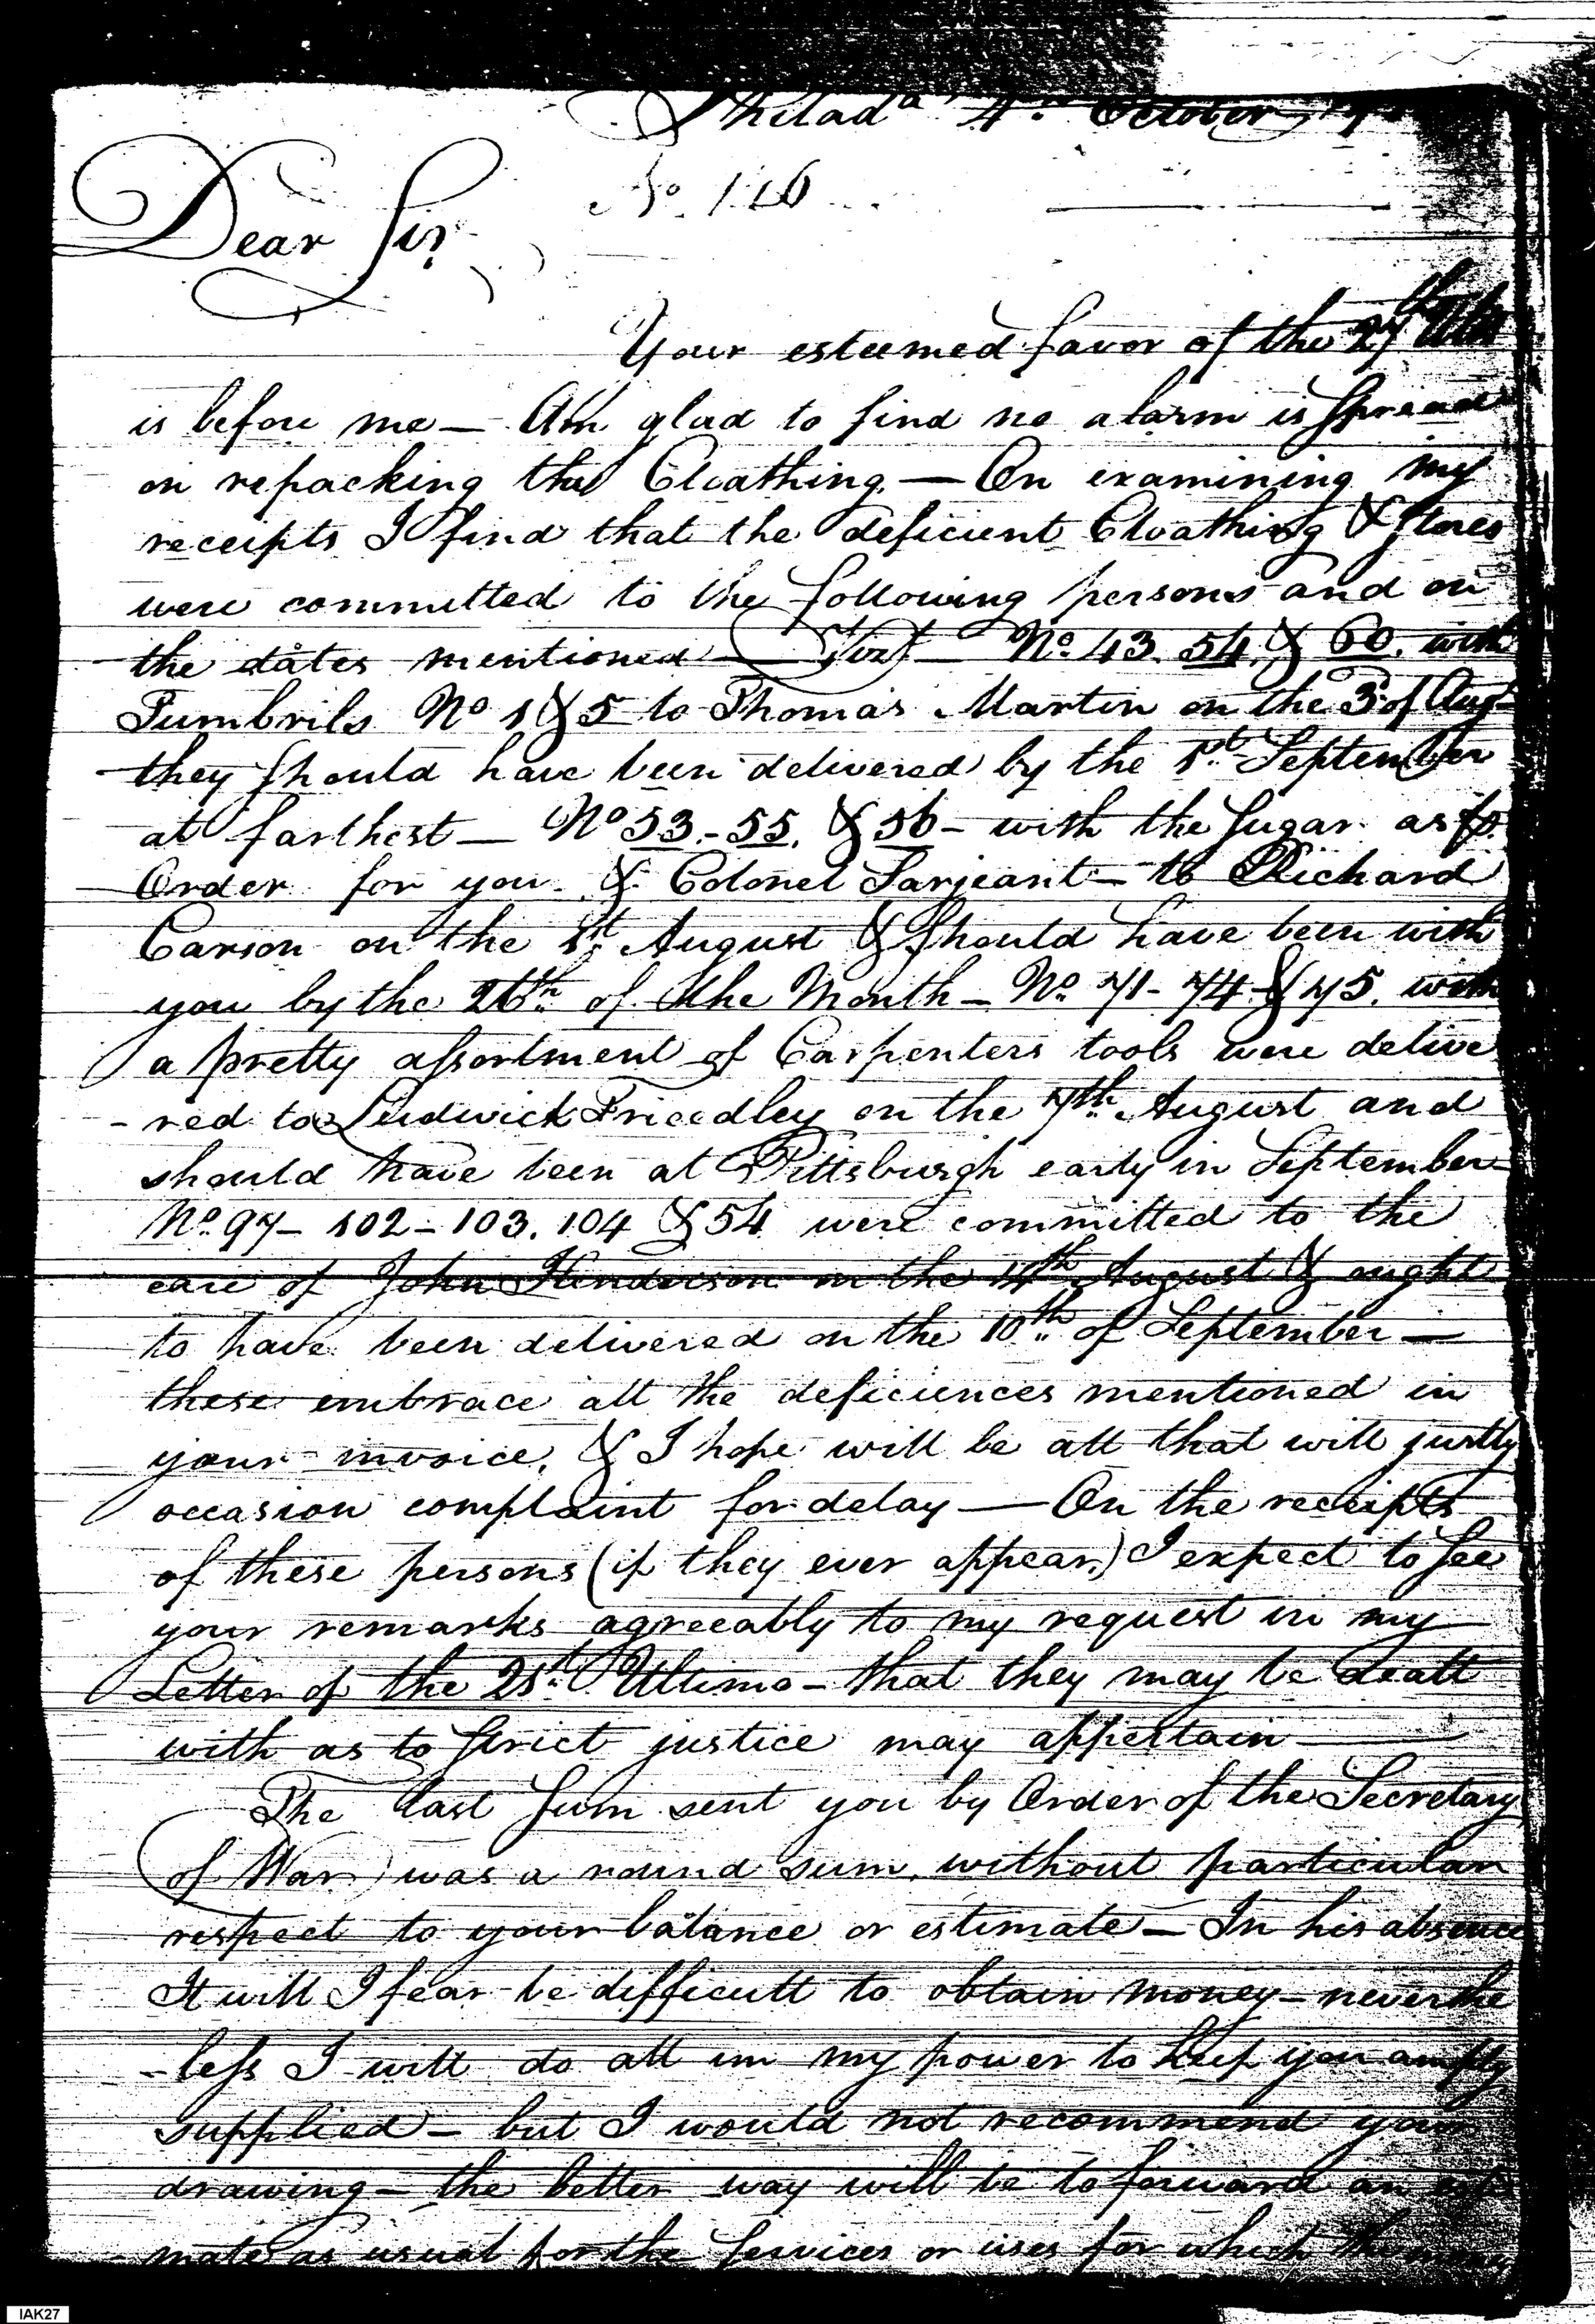 Philad.ª 4.th October 17
No. 116
Dear Sir
Your esteemed favor of the 27th Ulto
is before me — Am glad to find no alarm is spread
on repacking the Cloathing. — On examining my
receipts I find that the deficient Cloathing & stores
were committed to the following persons and on
the dates mentioned — Vizt — No. 43. 54. & 60. with
Tumbrils No 1 & 5 to Thomas Martin on the 3d of Augt
they should have been delivered by the 1st September
at farthest — No 53 - 55. & 56 - with the sugar as
Order for you & Colonel Sarjeant — to Richard
Carson on the 1st August & should have been with
you by the 26th of the Month — No. 71 - 74 & 75. with
a pretty assortment of Carpenters tools were delive
- red to Ludwick Friedley on the 7th August and
should have been at Pittsburgh early in September
No. 97 - 102 - 103. 104 & 54 were committed to the
care of John Henderson on the 14th August & ought
to have been delivered on the 10th of September —
these embrace all the deficiences mentioned in
your invoice, & I hope will be all that will justly
occasion complaint for delay — On the receipts
of these persons (if they ever appear) I expect to see
your remarks agreeably to my request in my
Letter of the 21st Ultimo - that they may be dealt
with as to strict justice may appertain —
The last sum sent you by Order of the Secretary
of War was a round sum, without particular
respect to your balance or estimate — In his absence
It will I fear be difficult to obtain money - neverthe
- less I will do all in my power to keep you amply
supplied - but I would not recommend your
drawing - the better way will be to forward an esti
- mate as usual for the services or uses for which the money
IAK27